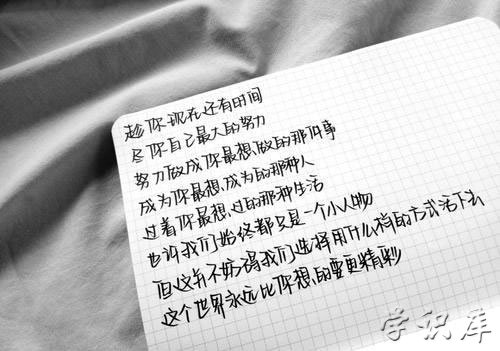 趁你现在还有时间
尽你自己最大的努力
努力做成你最想做的那件事
成为你最想成为的那种人
过着你最想过的那种生活
也许我们始终都只是一个小人物
但这并不妨碍我们选择用什么样的方式活下去
这个世界永远比你想的要更精彩
学识库